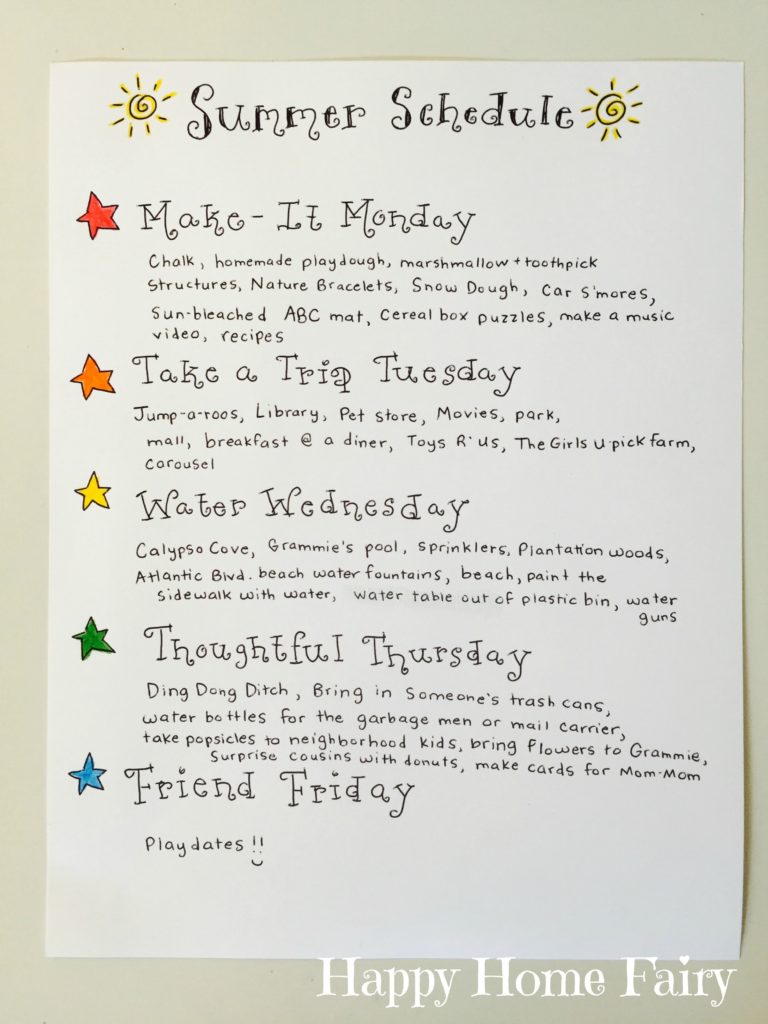 Summer Schedule
Make-It Monday
Chalk, homemade playdough, marshmallow + toothpick
Structures, Nature Bracelets, Snow Dough, Car S'mores,
Sun-bleached ABC mat, Cereal box puzzles, make a music
video, recipes
Take a Trip Tuesday
Jump-a-roos, Library, Pet store, Movies, park,
mall, breakfast @ a diner, Toys R' Us, The Girls U-pick farm,
Carousel
Water Wednesday
Calypso Cove, Grammie's pool, Sprinklers, Plantation woods,
Atlantic Blvd. beach water fountains, beach, paint the
sidewalk with water, water table out of plastic bin, water
guns
Thoughtful Thursday
Ding Dong Ditch, Bring in Someone's trash cans,
water bottles for the garbage men or mail carrier,
take popsicles to neighborhood kids, bring flowers to Grammie,
Surprise cousins with donuts, make cards for Mom-Mom
Friend Friday
Playdates !!
Happy Home Fairy